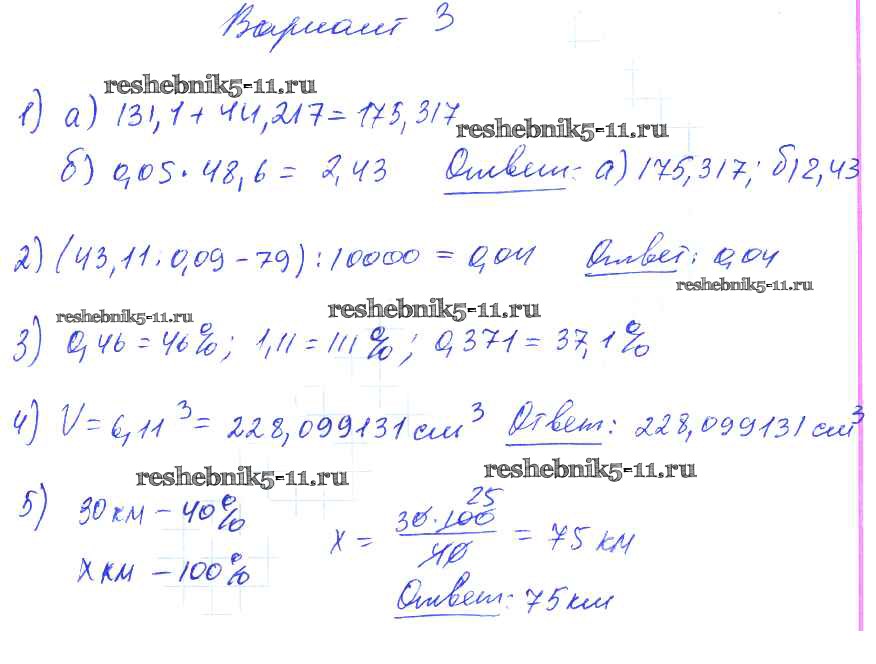 Вариант 3
reshebnik5-11.ru
1) а) 131,1 + 44,217 = 175,317
reshebnik5-11.ru
б) 0,05 · 48,6 = 2,43 Ответ: а) 175,317; б) 2,43
2) (43,11 : 0,09 - 79) : 10000 = 0,04 Ответ: 0,04
reshebnik5-11.ru
reshebnik5-11.ru reshebnik5-11.ru
3) 0,46 = 46%; 1,11 = 111%; 0,371 = 37,1%
4) V = 6,11³ = 228,099131 см³ Ответ: 228,099131 см³
reshebnik5-11.ru reshebnik5-11.ru
5) 30 км - 40% x = 30·100 25 / 40 = 75 км
x км - 100%
Ответ: 75 км